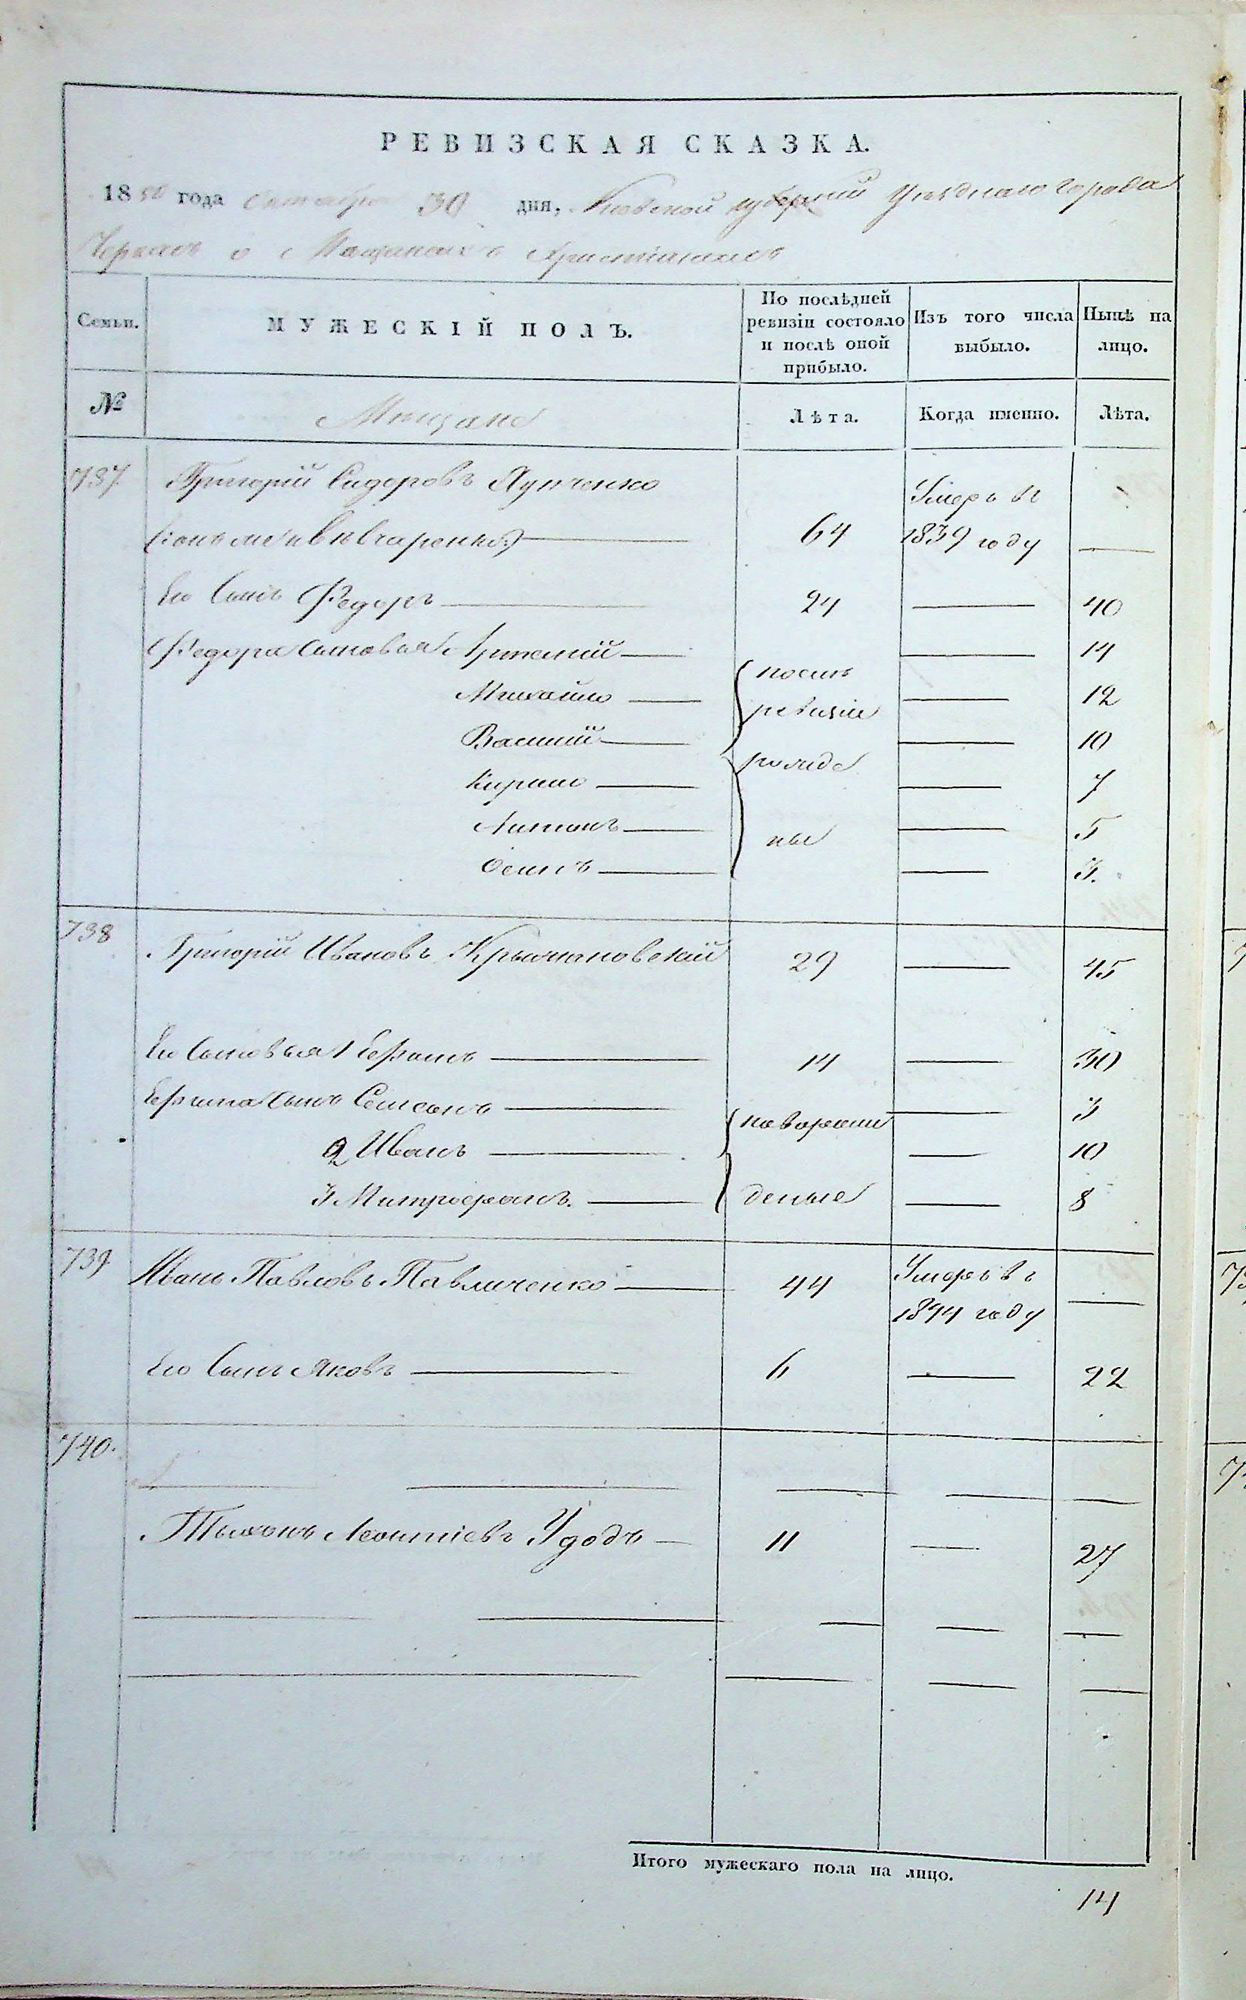 РЕВИЗСКАЯ СКАЗКА.
1850 года Октября 30 дня, Киевской губернии Уезднаго города
Черкасъ о Мещанахъ Християнахъ
Семьи. МУЖЕСКІЙ ПОЛЪ. По послѣдней ревизіи состояло и послѣ оной прибыло. Изъ того числа выбыло. Нынѣ на лицо.
№ Мещане Лѣта. Когда именно. Лѣта.
737 Григорій Сидоровъ Умеръ въ
64 1839 году
Его Сынъ Федоръ 24 40
Федора сыновья Артемій 14
Михайло послѣ 12
Василий ревизіи 10
Кирило рожде 7
Антонъ ны 5
Осипъ 3.
738 Григорій Ивановъ 29 45
Его сыновья 1 Ефимъ 14 30
Ефима сынъ Семенъ новорож 3
2 Иванъ 10
3 Митрофанъ. денные 8
739 Иванъ Павловъ Павличенко 44 Умеръ въ
1844 году
Его Сынъ Яковъ 6 22
740.
Тихонъ Леонтіевъ Удодъ 11 27
Итого мужескаго пола на лицо.
14